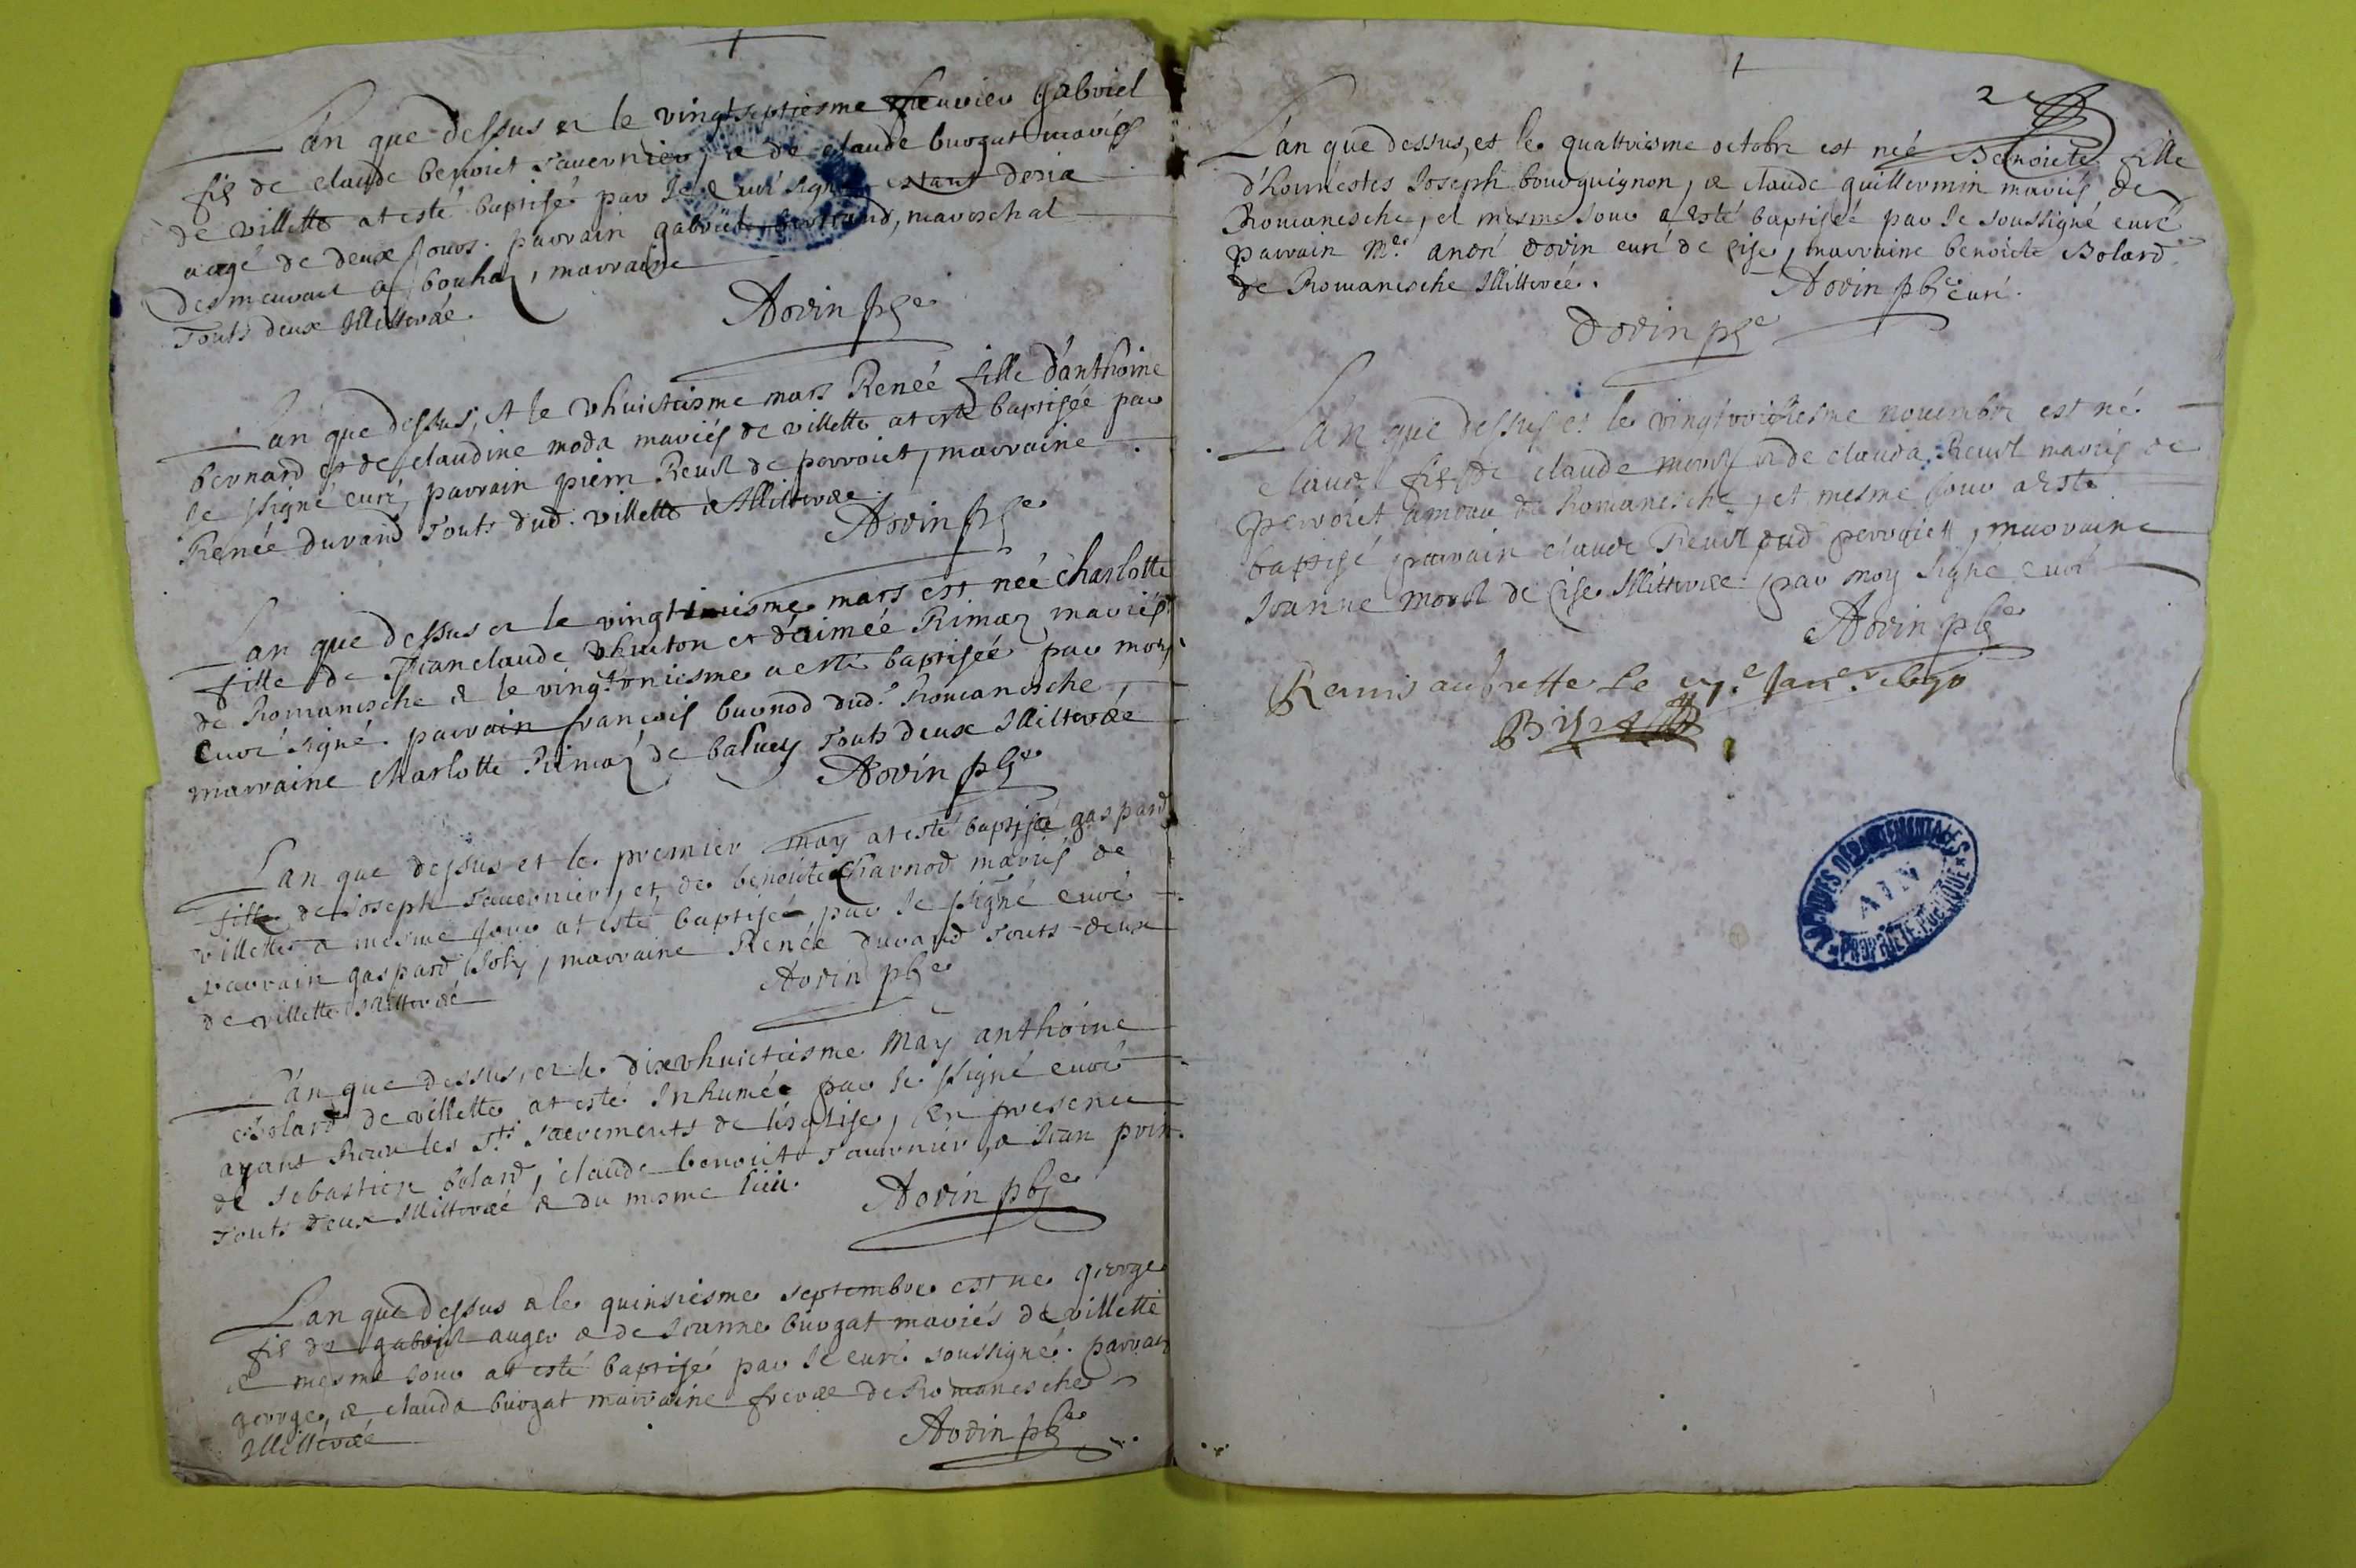 L'an que dessus et le vingtseptiesme feuvrier Gabriel
fils de claude benoict Tavernier, & de claude burgat mariés
de villette at esté baptisé par le curé signé estant desia
aagé de deux jours. parrain gabriel bertrand, mareschal
desmeurant a bouha, marraine
Touts deux Illitterée.
Dovin pbre
L'an que dessus, et le vhuictiesme mars Renée fille d'anthoine
bernard et de claudine moda mariés de villette at esté baptisée par
le ssigné curé, parrain pierre Revel de perroict, marraine
Renée durand Touts dud. villette Illitterée.
Dovin pbre
L'an que dessus et le vingtiesme mars est née Charlotte
fille de Jeanclaude vhuiton et d'aimée Rimaz mariés
de Romanesche & le vingtuniesme a esté baptisée par moy
Curé signé. parrain françois burnod dud. Romanesche,
marraine charlotte Rimaz de balvey Touts deux Illitterée
Dovin pbre
L'an que dessus et le premier may at esté baptisé gaspard
fille de Joseph Tavernier, et de benoite Charnod mariés de
villette & mesme jour at esté baptisée par le ssigné curé
parrain gaspard Joly, marraine Renée durand Touts deux
de villette Illitterée
Dovin pbre
L'an que dessus, et le dixvhuictiesme May anthoine
bolard de villette at esté Inhumée par le ssigné curé
ayant Receu les Sts Sacrements de l'esglise, En presence
de sebastien bolard, claude benoict Tavernier, & Jean prin
Touts deux Illitterée & du mesme lieu.
Dovin pbre
L'an que dessus & le quinsiesme septembre est né george
fils de gabriel auger & de Jeanne burgat mariés de villette
& mesme jour at esté baptisé par le curé soussigné. parrain
george, & clauda burgat marraine frerae de Romanesche
Illitterée
Dovin pbre
2e
L'an que dessus, et le quattriesme octobre est née Benoicte fille
d'honnestes Joseph bourguignon, & claude guillermin mariés de
Romanesche, et mesme jour a esté baptisée par le soussigné curé
parrain Mre andré Dovin curé de Cise, marraine benoicte Bolard
de Romanesche Illitterée.
Dovin pbre curé.
Dovin pbre
L'an que dessus et le vingttroisiesme novembre est né
claude fils de claude morel & de clauda Revel mariés de
perroict ameau de Romanesche, et mesme jour a esté
baptisé parrain claude Revel dud perroict, marraine
Jeanne morel de Cise Illitterée. par moy signé curé
Dovin pbre
Remis au greffe le Janer 1690
ARCHIVES DÉPARTEMENTALES
AIN
PROPRIÉTÉ PUBLIQUE